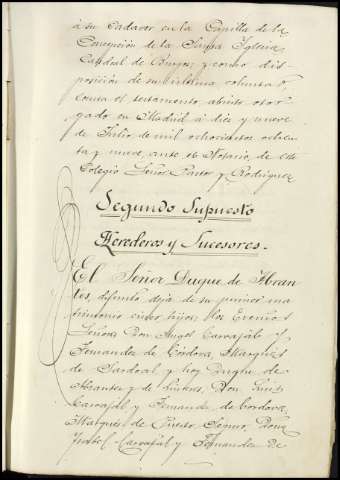 á su cadaver en la Capilla de la
Concepción de la Santa Iglesia
Catedral de Burgos, y como dis-
posición de su ultima voluntad,
consta el testamento abierto otor-
gado en Madrid á diez y nueve
de Julio de mil ochocientos ochen-
ta y nueve, ante el Notario de este
Colegio Señor Pastor y Rodriguez
Segundo Supuesto
Herederos y Sucesores.
El Señor Duque de Abran-
tes, difunto deja de su primer ma-
trimonio cinco hijos, los Excmos
Señores Don Angel Carvajal y
Fernandez de Córdova, Marqués
de Sardoal y hoy Duque de
Abrantes y de Linares, Don Luis
Carvajal y Fernandez de Cordova,
Marqués de Puerto Seguro, Doña
Isabel Carvajal y Fernandez de